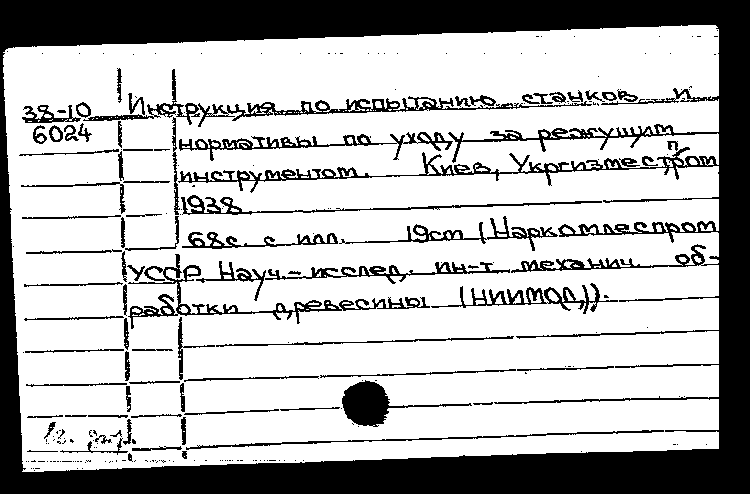 38-10 Инструкция по испытанию станков и
6024 нормативы по уходу за режущим
инструментом. Киев, Укргизместпром
1938
68с. с илл. 19cm (Наркомлеспром
УССР. Науч.-исслед. ин-т механич. об-
работки древесины (НИИМОД)).